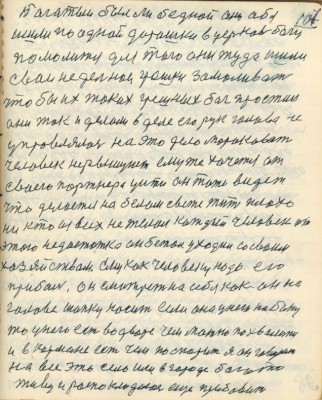 богатыи был ли бедной они абы
шили по одной дорошки в церков богу
помолится для того они туда шили
свои неделной грешки замоливат
что бы их таких грешных бог простил
они так и делали в деле его рук голова не
управлялас на это дело мораковат
человек
ему тоже хочется от
своего партнера уити он тоже видет
что делается на белом свете жит плохо
ни кто из всех не желал каждый человек из
этого недостотка он бежал уходил со своим
хозяйствам. ему как человеку надо его
прибыл. он смотрет на себя как он на
голове шапку носит если она у него на боку
то у него ест во дворе чем можно похвалится
и в кормане ест чем поспорит я он говорит
на все это село или в городе богато
живу и роспоклодаю еще прибовит